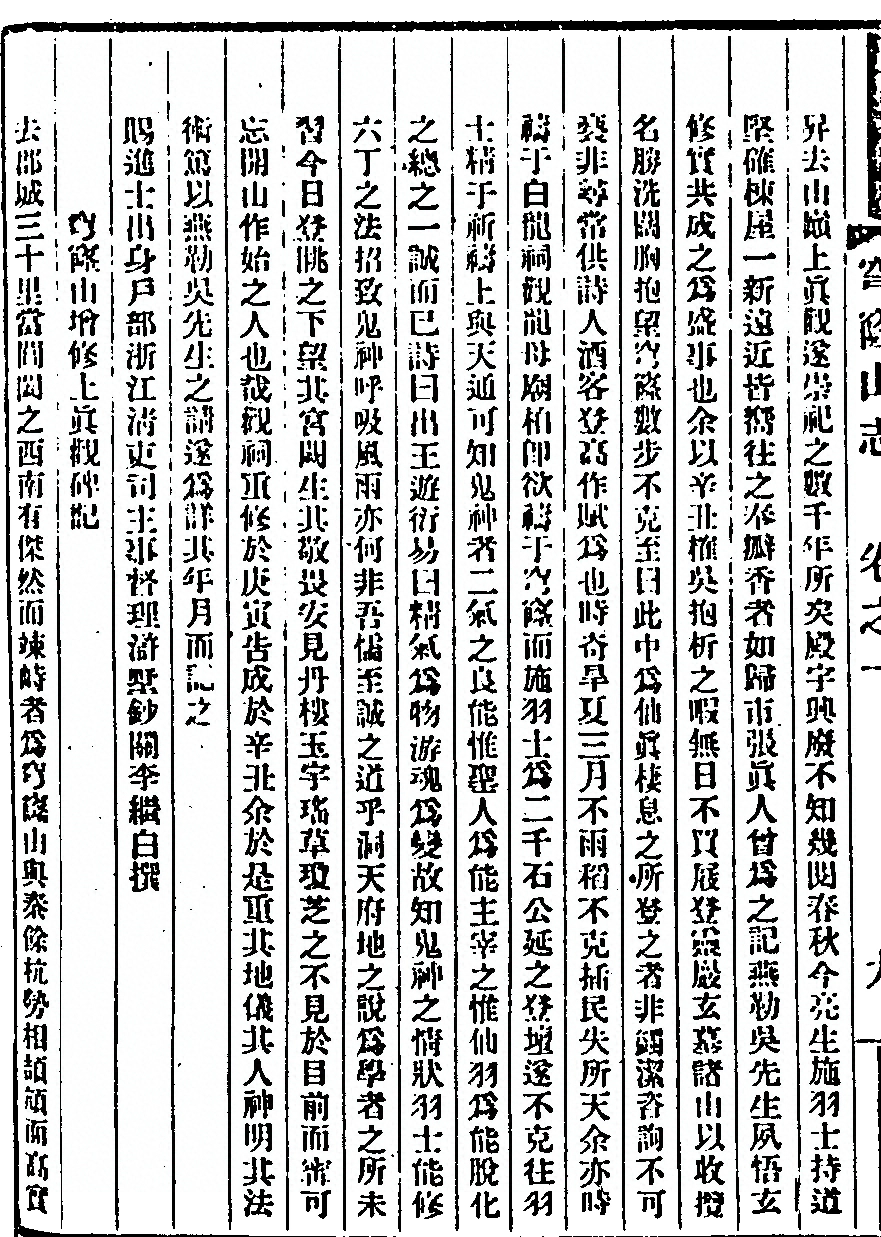 穹窿山志 卷之一 九
昇去山巔上眞觀遂崇祀之數千年所矣殿宇興廢不知幾閱春秋今亮生施羽士持道
堅確棟屋一新遠近皆嚮往之奉瓣香者如歸市張眞人曾爲之記燕勒吳先生夙悟玄
修實共成之爲盛事也余以辛丑榷吳抱析之暇無日不買屐登靈巖玄墓諸山以收攬
名勝洗闊胸抱望穹窿數步不克至曰此中爲仙眞棲息之所登之者非蠲潔咨詢不可
褻非尋常供詩人酒客登高作賦爲也時奇旱夏三月不雨稻不克插民失所天余亦時
禱于白龍祠觀龍母廟柏即欲禱于穹窿而施羽士爲二千石公延之登壇遂不克往羽
士精于祈禱上與天通可知鬼神者二氣之良能惟聖人爲能主宰之惟仙羽爲能脫化
之總之一誠而已詩曰出王遊衍易曰精氣爲物游魂爲變故知鬼神之情狀羽士能修
六丁之法招致鬼神呼吸風雨亦何非吾儒至誠之道乎洞天府地之說爲學者之所未
習今日登眺之下望其宮闕生其敬畏安見丹樓玉宇瑤草瓊芝之不見於目前而甯可
忘開山作始之人也哉觀祠重修於庚寅告成於辛丑余於是重其地儀其人神明其法
術篤以燕勒吳先生之請遂爲詳其年月而記之
賜進士出身戶部浙江清吏司主事督理滸墅鈔關李繼白撰
穹窿山增修上眞觀碑記
去郡城三十里當閶閩之西南有傑然而竦峙者爲穹窿山與秦餘杭勢相頡頏而高實